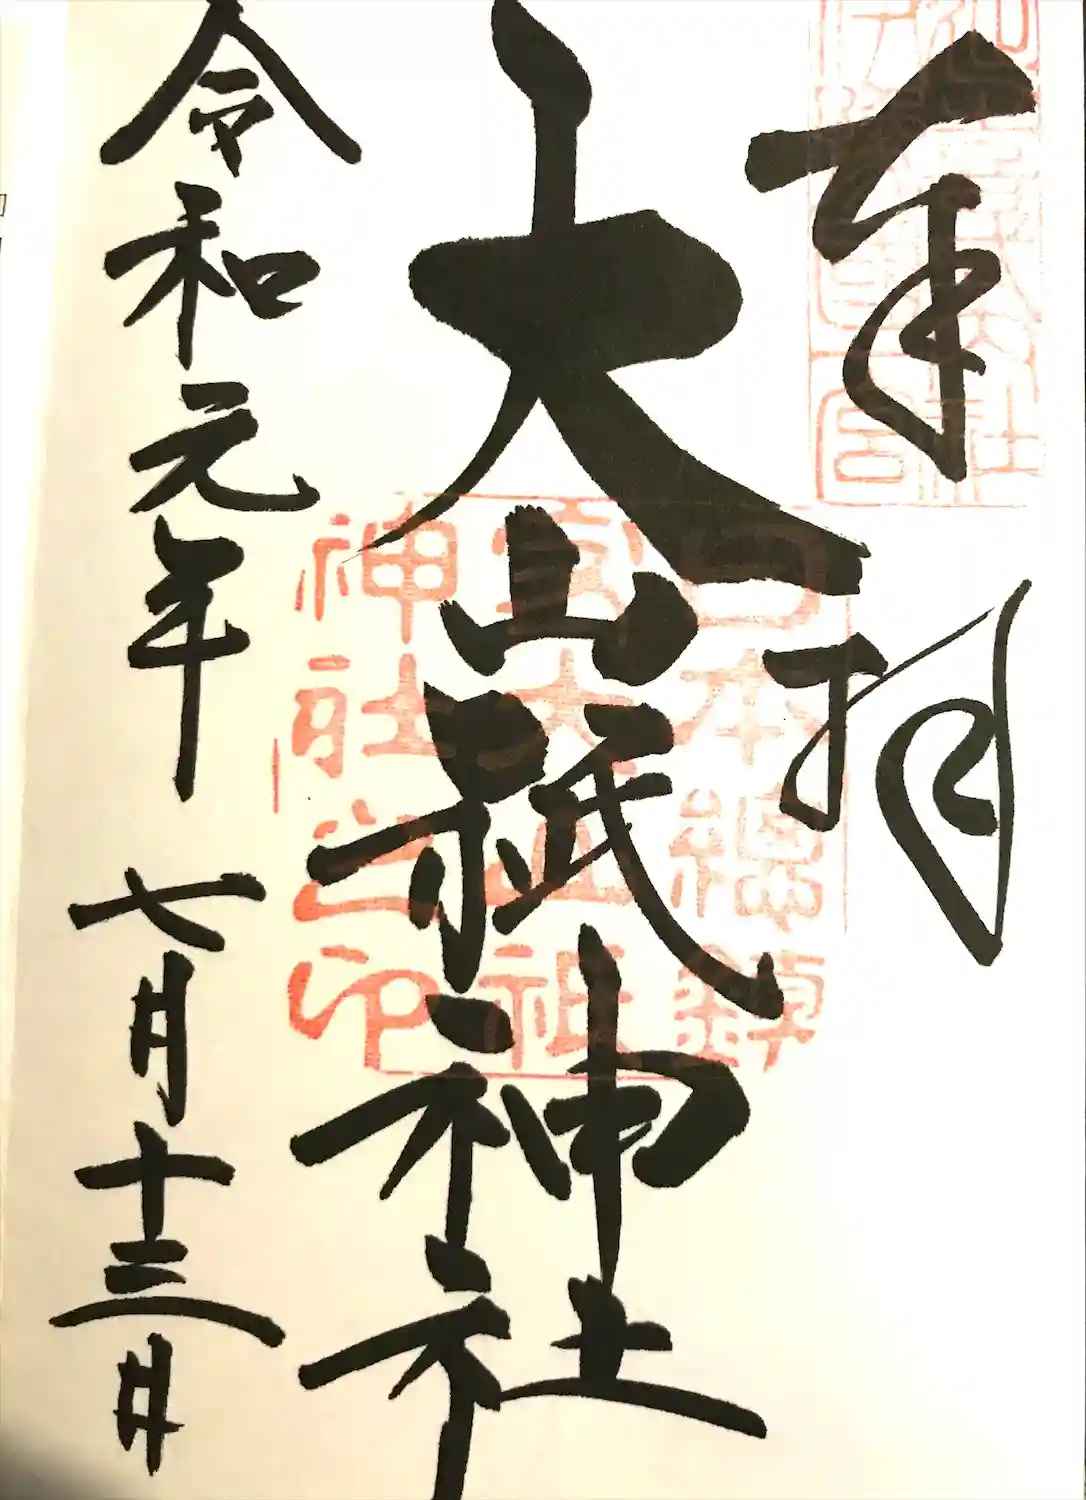 奉拝
大山祇神社
令和元年七月十三日
日本總鎮
守大山祇
神社之印